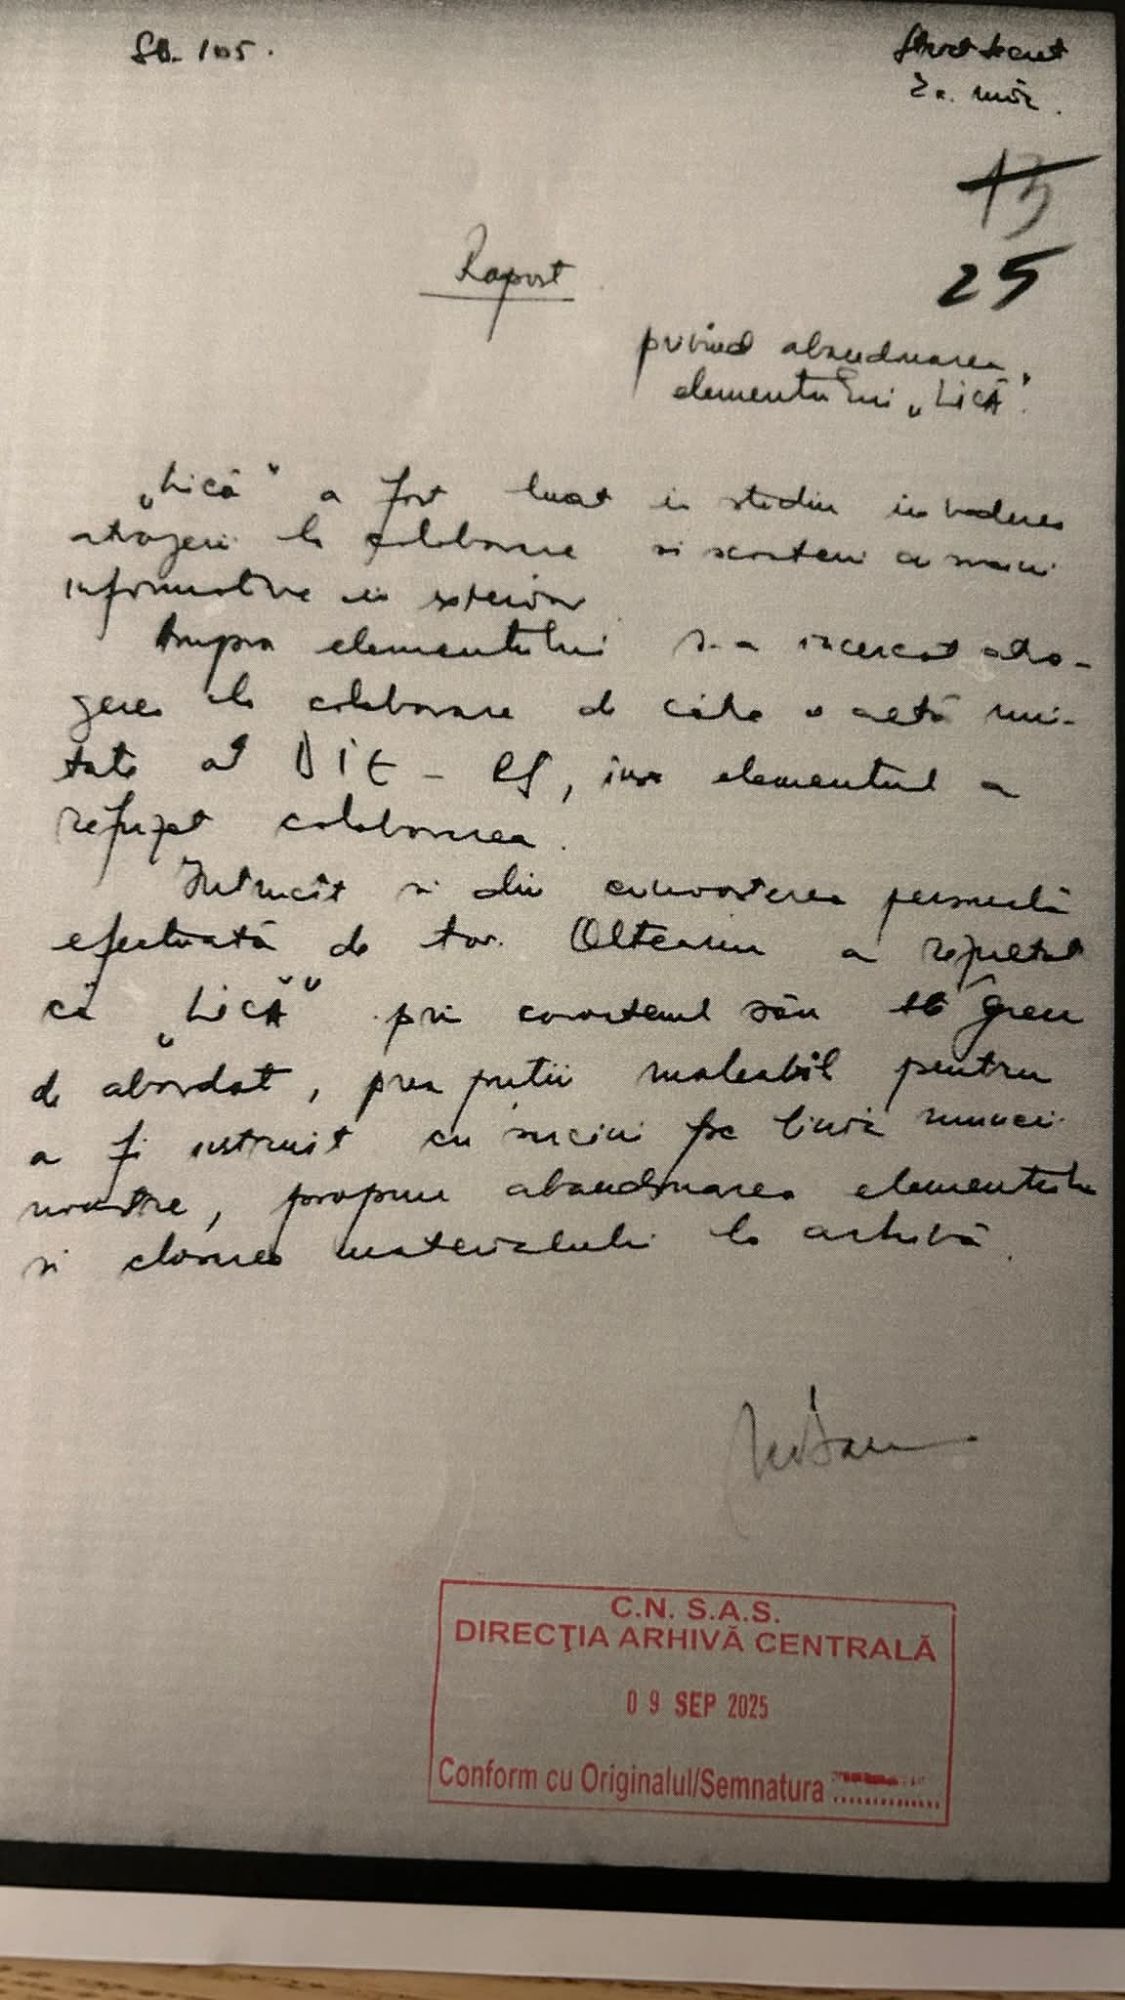 SB. 105.
Strict secret
Ex. unic.
13
25
Raport
privind abandonarea
elementului „Lică".
„Lică" a fost luat in studiu in vederea
atragerii la colaborare si scoaterii cu sarcini
informative in exterior
Asupra elementului s-a incercat atra-
gerea la colaborare de către o altă uni-
tate a DIE -, insa elementul a
refuzat colaborarea.
Intrucît si din cunoasterea personală
efectuată de tov. Olteanu a rezultat
că „Lică" prin caracterul său greu
de abordat, prea puțin maleabil pentru
a fi instruit cu sarcini pe linia muncii
noastre, propun abandonarea elementului
si clasarea materialului la arhivă.
C.N. S.A.S.
DIRECŢIA ARHIVĂ CENTRALĂ
09 SEP 2025
Conform cu Originalul/Semnatura